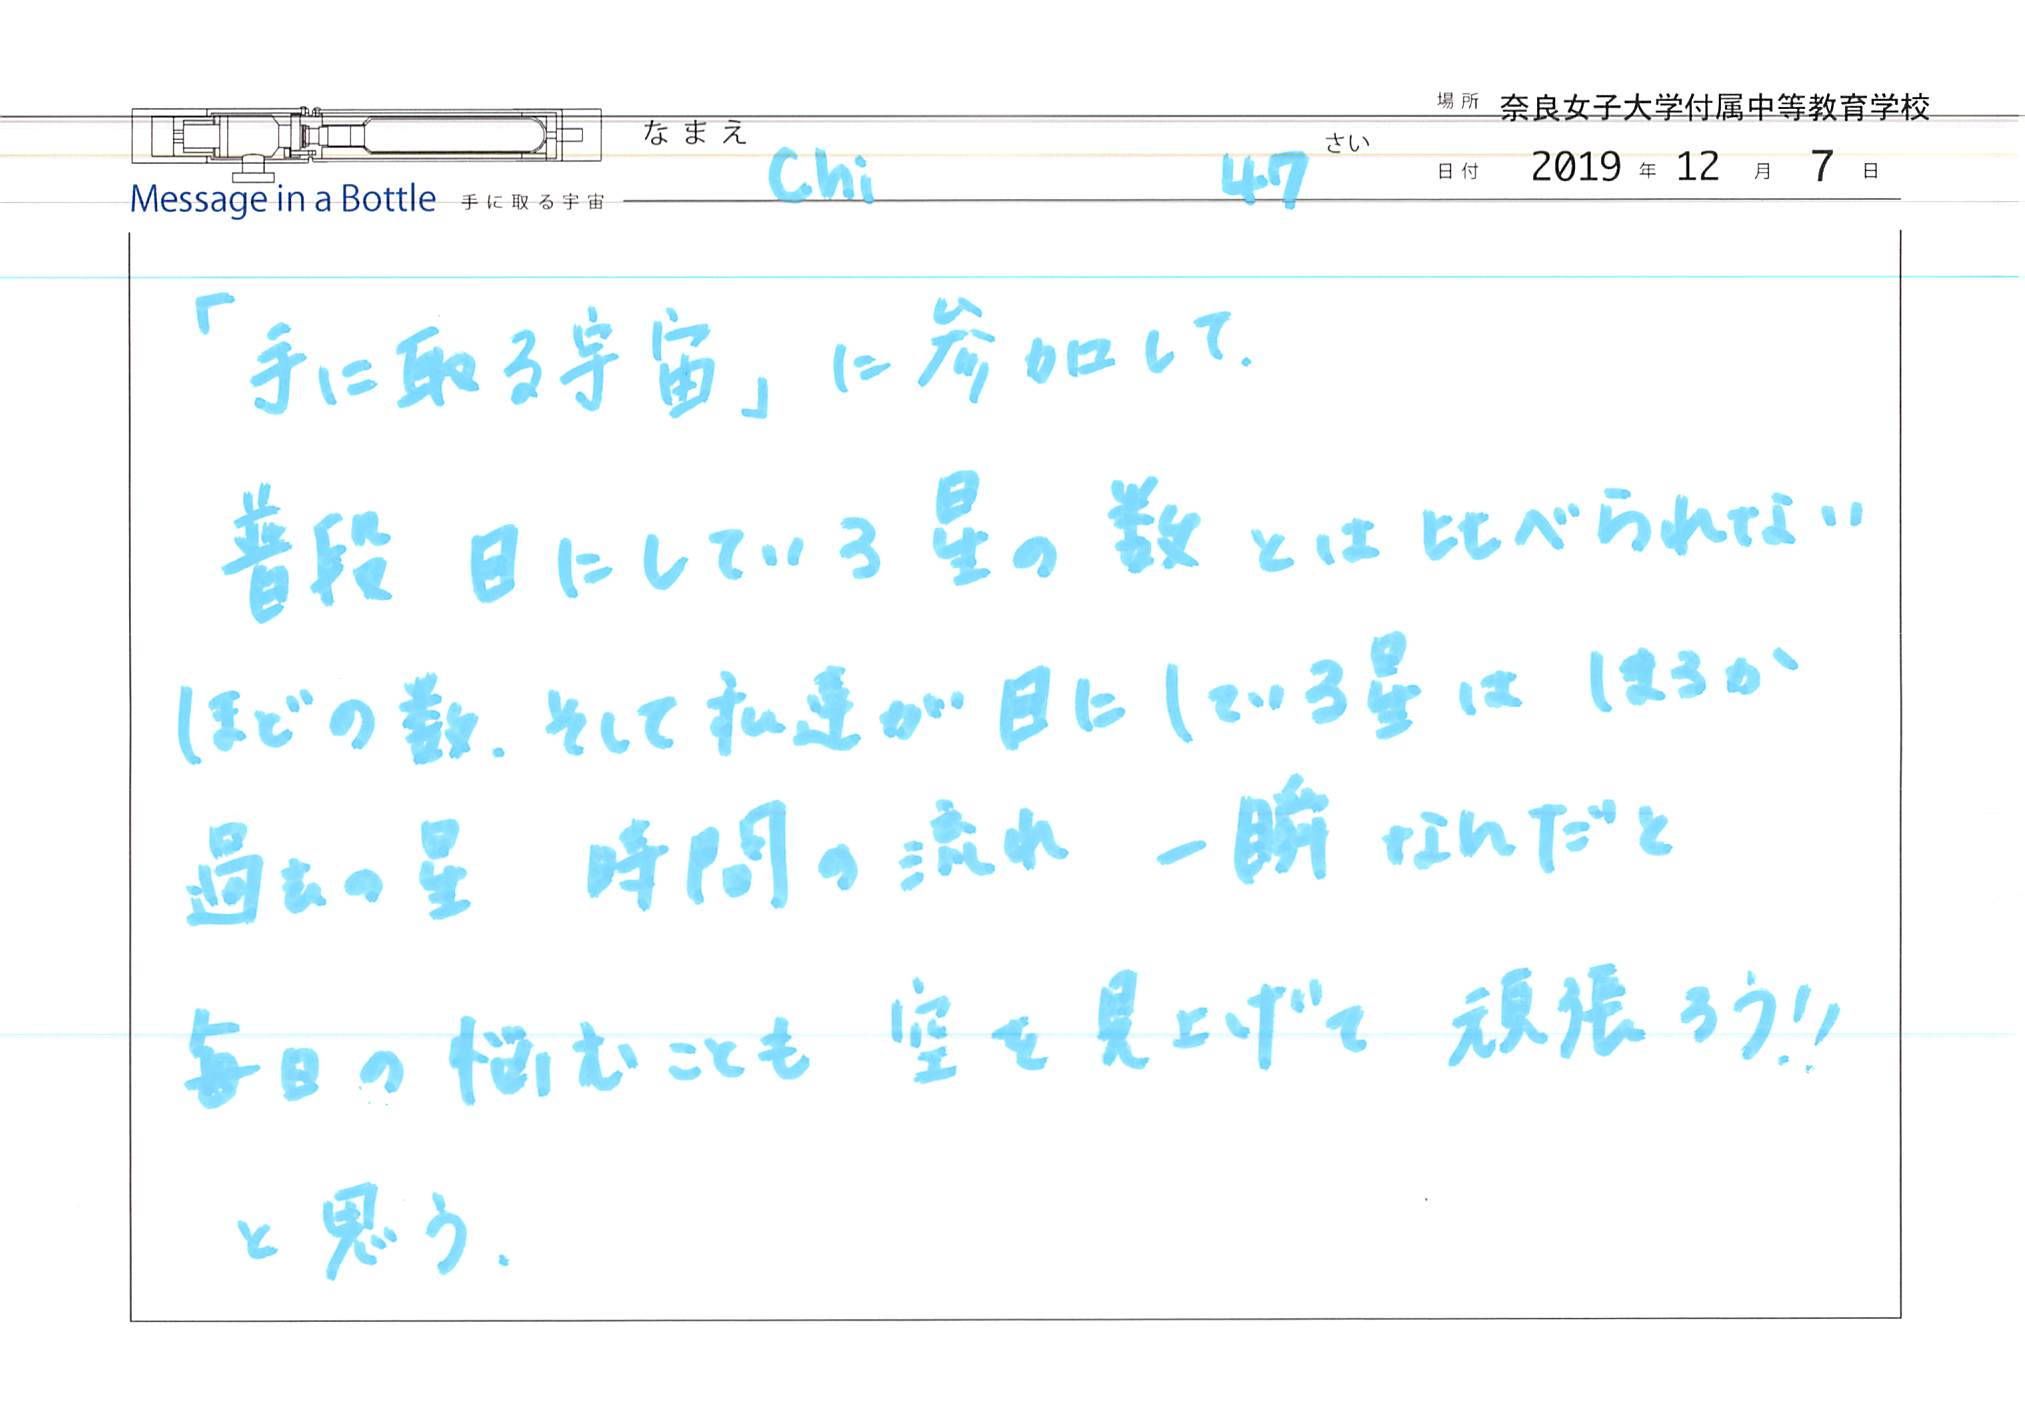 場所 奈良女子大学付属中等教育学校
なまえ Chi 47 さい
日付 2019 年 12 月 7 日
Message in a Bottle 手に取る宇宙
「手に取る宇宙」に参加して.
普段 目にしている星の数とは比べられない
ほどの数. そして私達が目にしている星は はるか
過去の星 時間の流れ 一瞬なんだと
毎日の悩むことも 空を見上げて 頑張ろう!!
と思う.